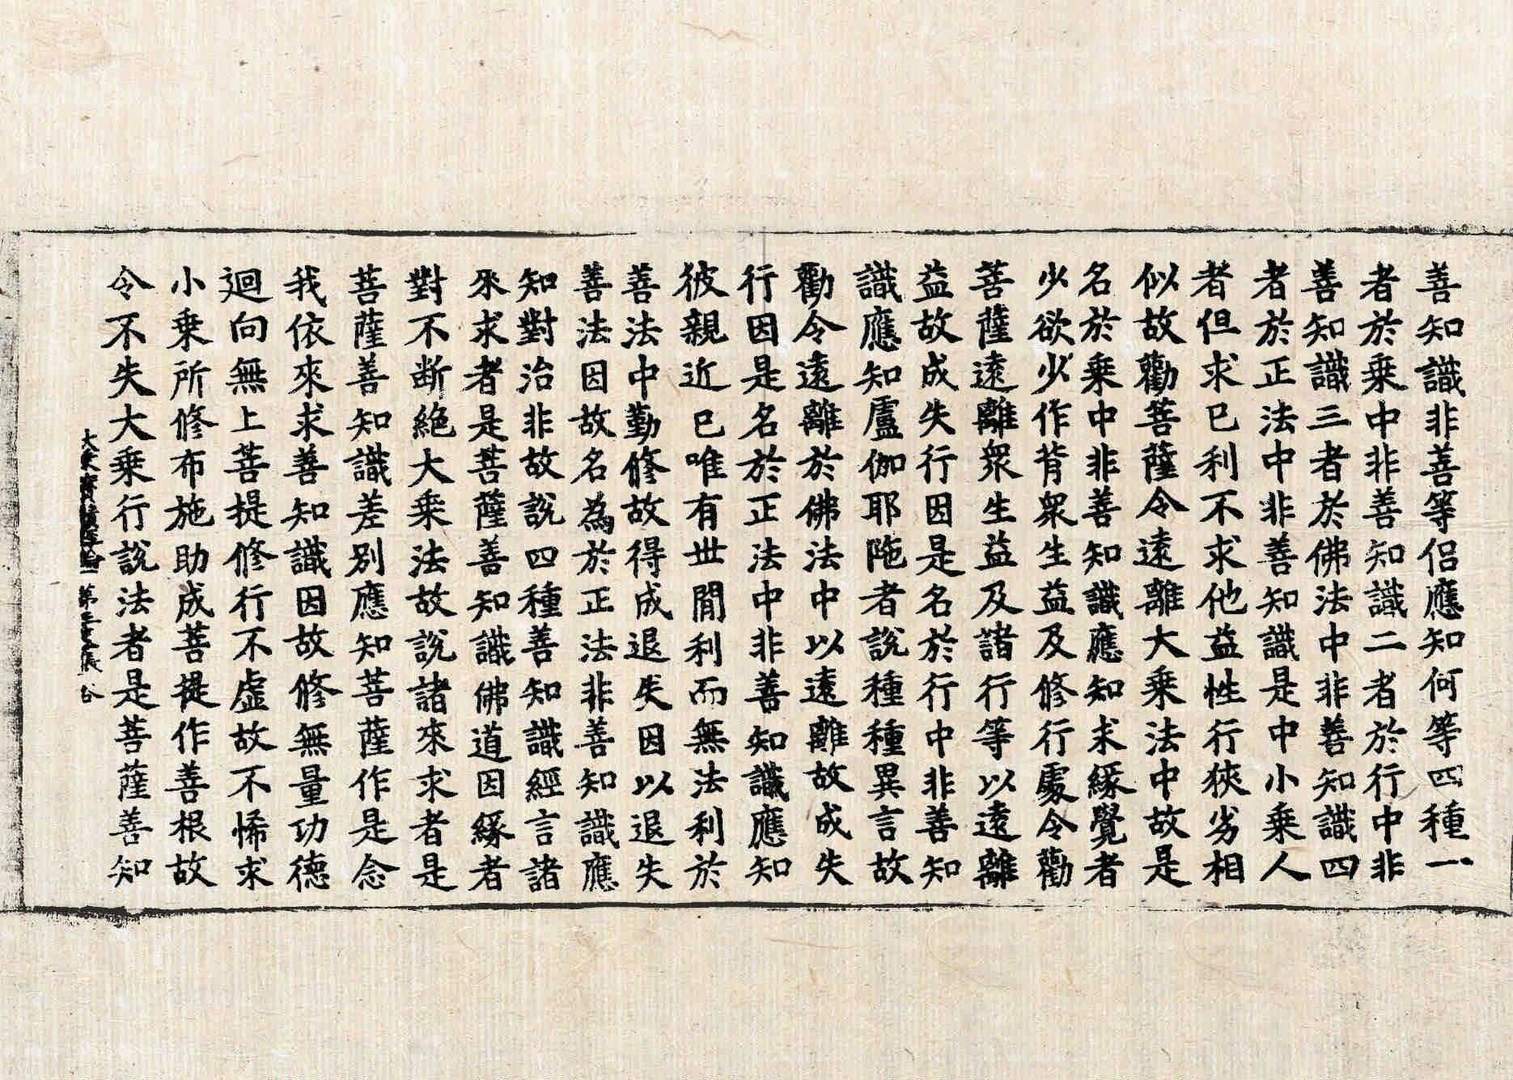 善知識非善等侣應知何等四種一
者於乗中非善知識二者於行中非
善知識三者於佛法中非善知識四
者於正法中非善知識是中小乗人
者但求己利不求他益性行狹劣相
似故勸菩薩令遠離大乗法中故是
名於乗中非善知識應知求緣覺者
少欲少作背衆生益及修行處令勸
菩薩遠離衆生益及諸行等以遠離
益故成失行因是名於行中非善知
識應知盧伽耶陁者說種種異言故
勸令遠離於佛法中以遠離故成失
行因是名於正法中非善知識應知
彼親近已唯有世閒利而無法利於
善法中勤修故得成退失因以退失
善法因故名為於正法非善知識應
知對治非故說四種善知識經言諸
來求者是菩薩善知識佛道因緣者
對不断絶大乗法故說諸來求者是
菩薩善知識差别應知菩薩作是念
我依來求善知識因故修無量功德
迴向無上菩提修行不虚故不悕求
小乗所修布施助成菩提作善根故
令不失大乗行說法者是菩薩善知
大乗寶 論 第 張 谷